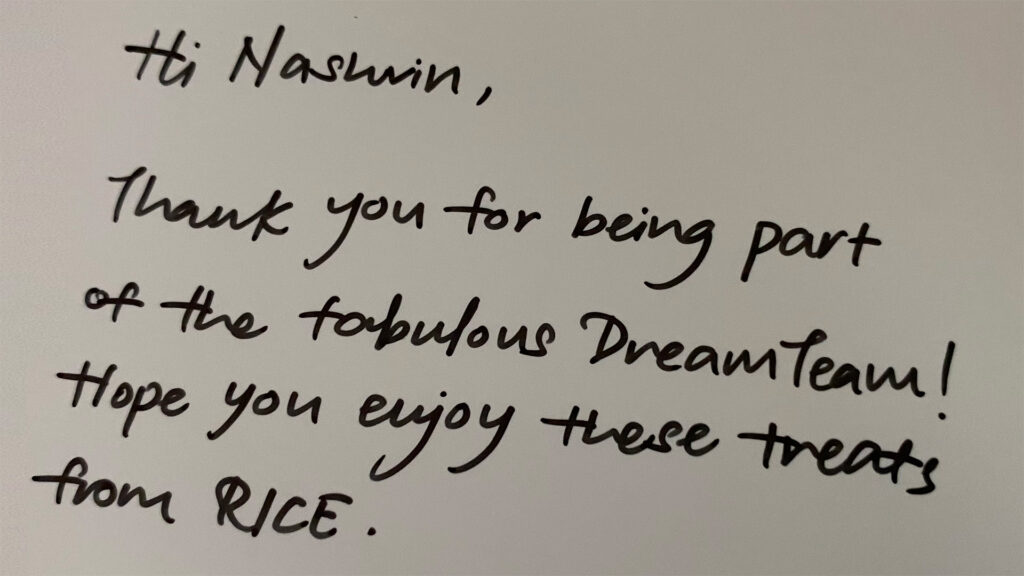 Hi Nashwin,
Thank you for being part
of the fabulous DreamTeam!
Hope you enjoy these treats
from RICE.